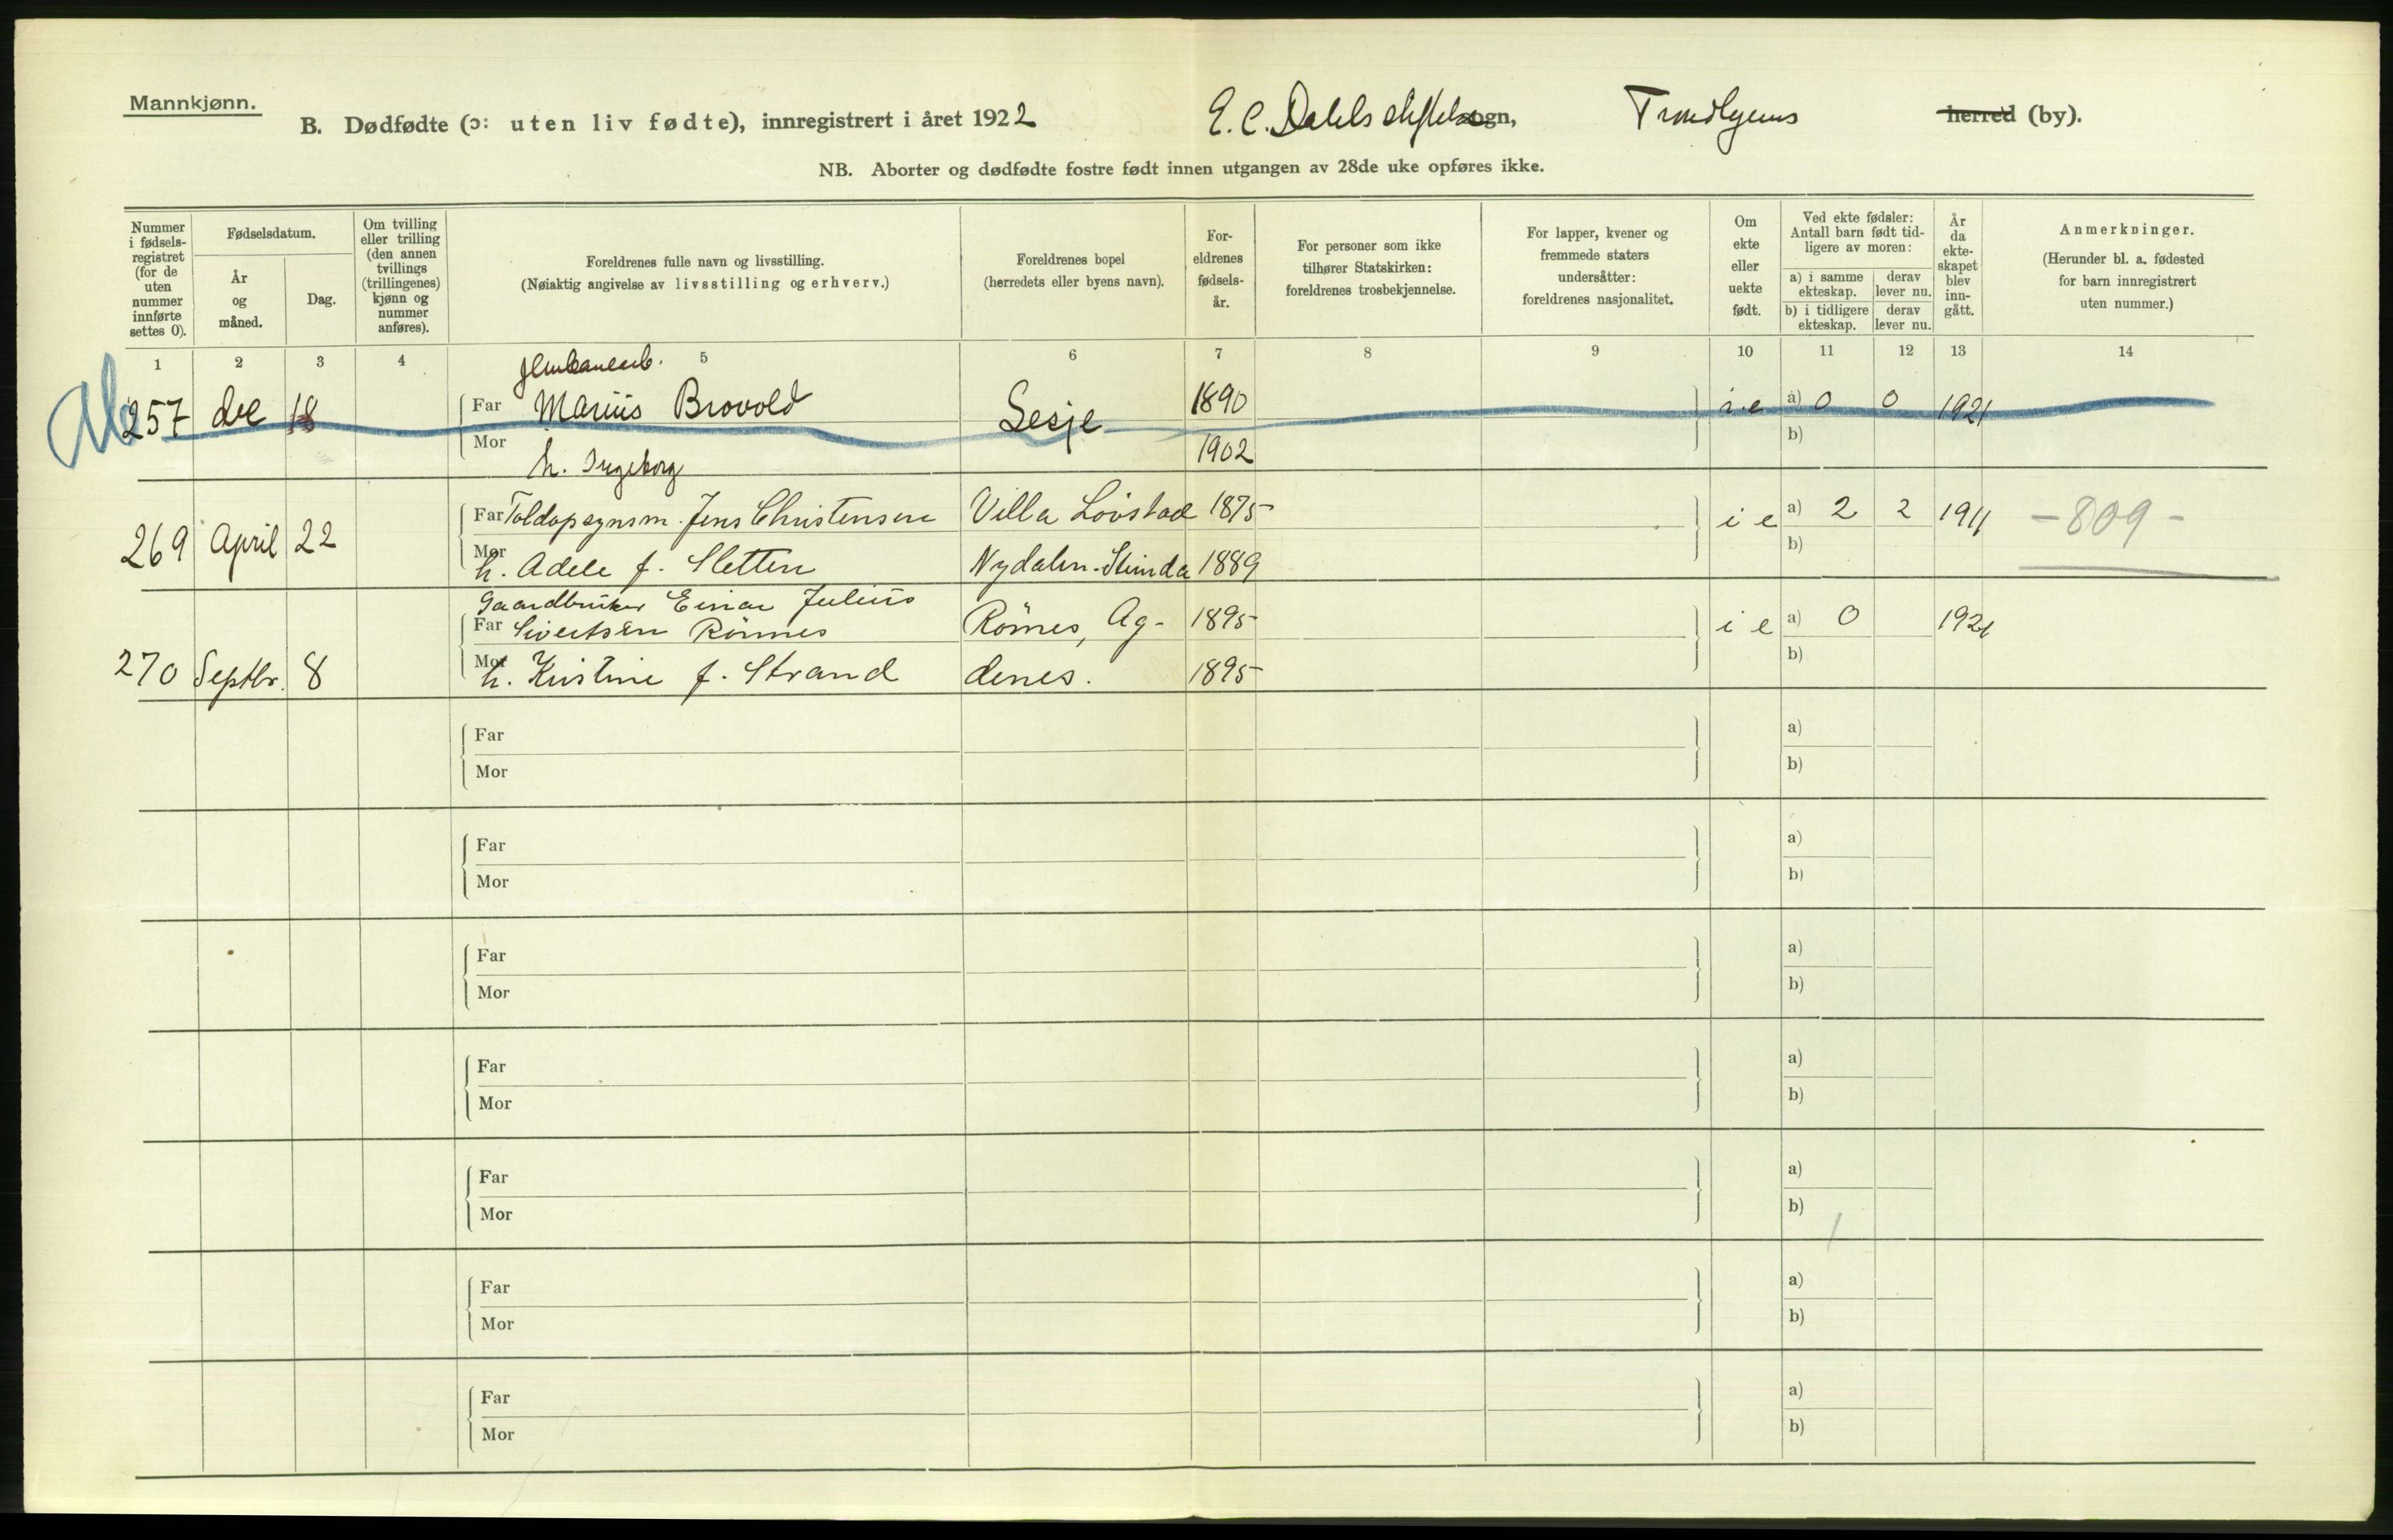 Mannkjønn.
B. Dødfødte (ɔ: uten liv fødte), innregistrert i året 1922 E. C. Dahls stiftelse sogn, Trondhjems herred (by).
NB. Aborter og dødfødte fostre født innen utgangen av 28de uke opføres ikke.
Nummer i fødsels-registret (for de uten nummer innførte settes 0).
Fødselsdatum.
År og måned.
Dag.
Om tvilling eller trilling (den annen tvillings (trillingenes) kjønn og nummer anføres).
Foreldrenes fulle navn og livsstilling.
(Nøiaktig angivelse av livsstilling og erhverv.)
Foreldrenes bopel
(herredets eller byens navn).
For-eldrenes fødsels-år.
For personer som ikke tilhører Statskirken: foreldrenes trosbekjennelse.
For lapper, kvener og fremmede staters undersåtter: foreldrenes nasjonalitet.
Om ekte eller uekte født.
Ved ekte fødsler: Antall barn født tid-ligere av moren:
a) i samme ekteskap.
derav lever nu.
b) i tidligere ekteskap.
derav lever nu.
År da ekte-skapet blev inn-gått.
Anmerkninger.
(Herunder bl. a. fødested for barn innregistrert uten nummer.)
1 2 3 4 5 6 7 8 9 10 11 12 13 14
257 de 18 Far Marius Brovold Lesje 1890 i.e a) 0 0 1921
Mor h. Ingeborg 1902 b)
269 April 22 Far Toldopsynsm. Jens Christensen Villa Lövstad 1875 i e a) 2 2 1911 -809-
Mor h. Adele f. Sletten Nydalen-Strinda 1889 b)
Gaardbruker Einar Julius
Far Sivertsen Rönnes Rönnes, Ag- 1895 i e a) 0 1921
270 Septbr. 8 Mor h. Kristine f. Strand denes. 1895 b)
Far a)
Mor b)
Far a)
Mor b)
Far a)
Mor b)
Far a)
Mor b)
Far a)
Mor b)
Far a)
Mor b)
Far a)
Mor b)